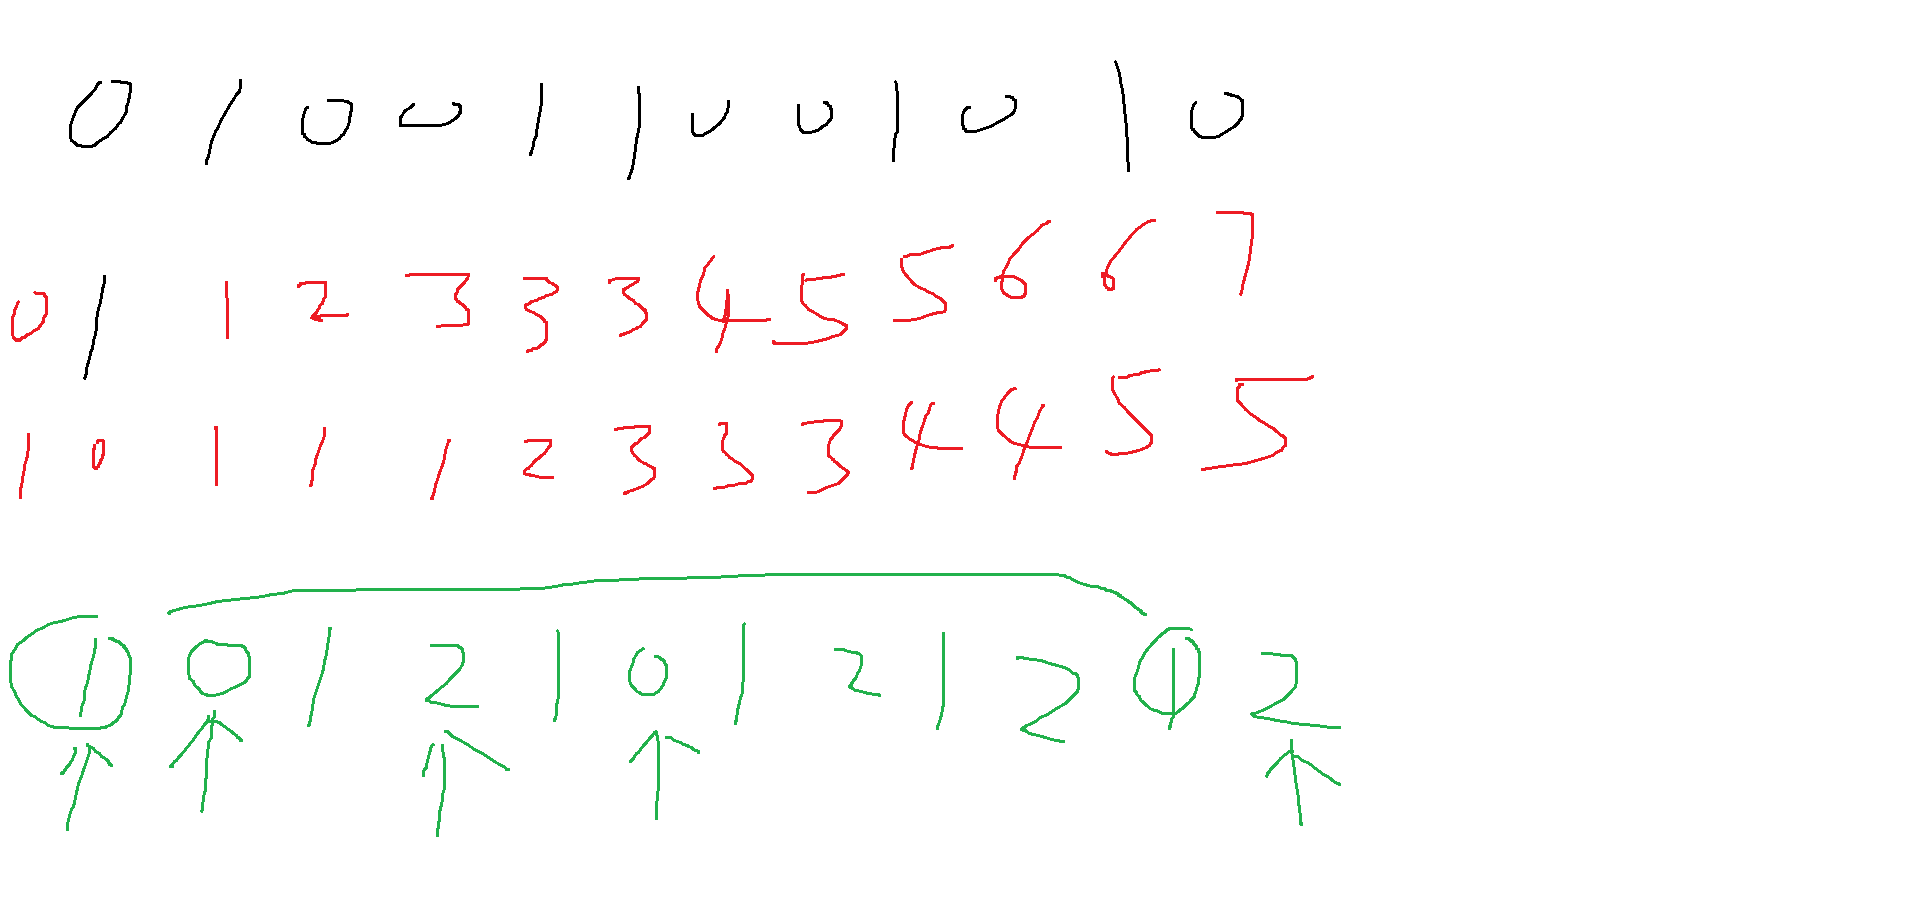 0 1 0 0 1 1 0 0 1 0 1 0
0 1 1 2 3 3 3 4 5 5 6 6 7
1 0 1 1 1 2 3 3 3 4 4 5 5
1 0 1 2 1 0 1 2 1 2 1 2